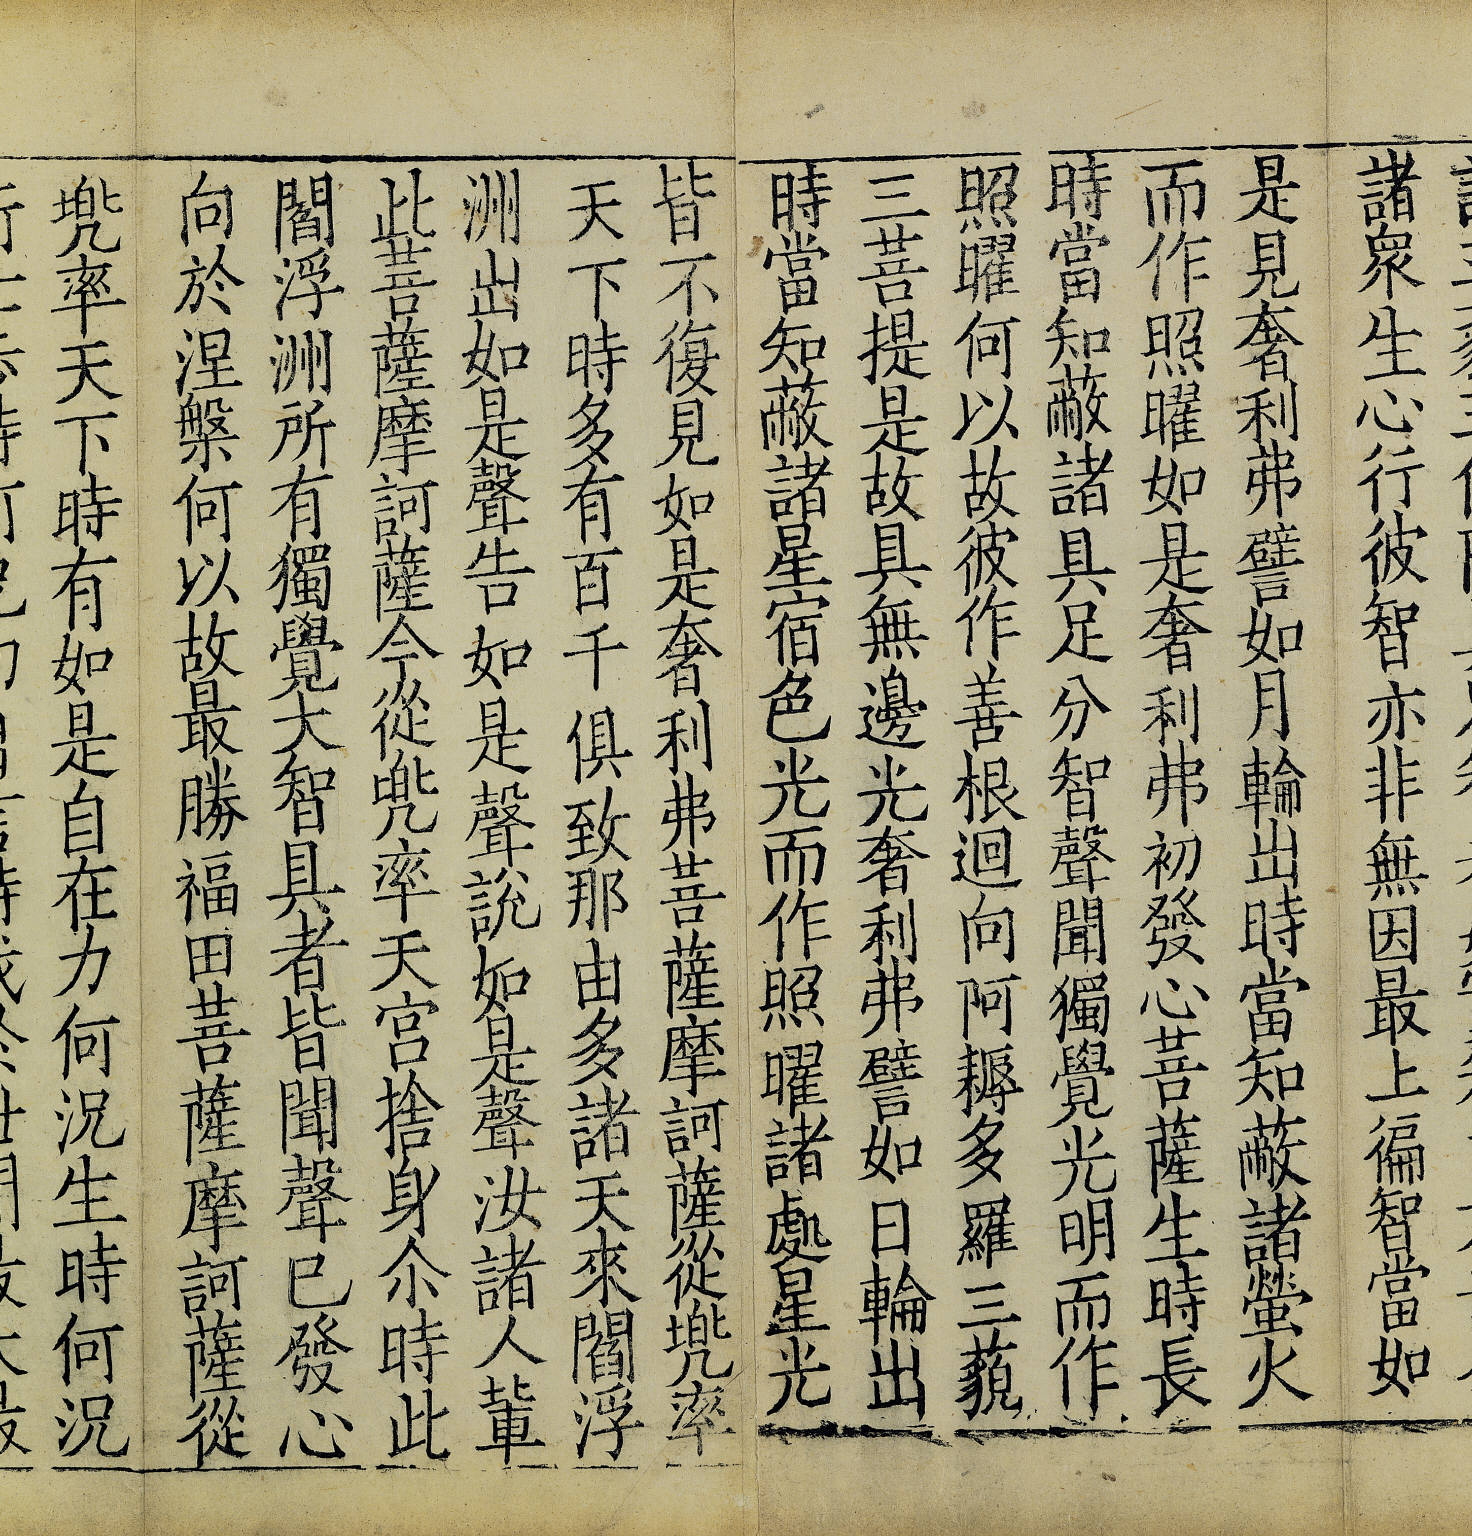 諸衆生心行彼智亦非無因最上徧智當如
是見奢利弗譬如月輪出時當知蔽諸螢火
而作照曜如是奢利弗初發心菩薩生時長
時當知蔽諸具足分智聲聞獨覺光明而作
照曜何以故彼作善根迴向阿耨多羅三藐
三菩提是故具無邊光奢利弗譬如日輪出
時當知蔽諸星宿色光而作照曜諸處星光
皆不復見如是奢利弗菩薩摩訶薩從兠率
天下時多有百千俱致那由多諸天來閻浮
洲出如是聲告如是聲說如是聲汝諸人輩
此菩薩摩訶薩今從兠率天宮捨身尒時此
閻浮洲所有獨覺大智具者皆聞聲已發心
向於涅槃何以故最勝福田菩薩摩訶薩從
兠率天下時有如是自在力何況生時何況